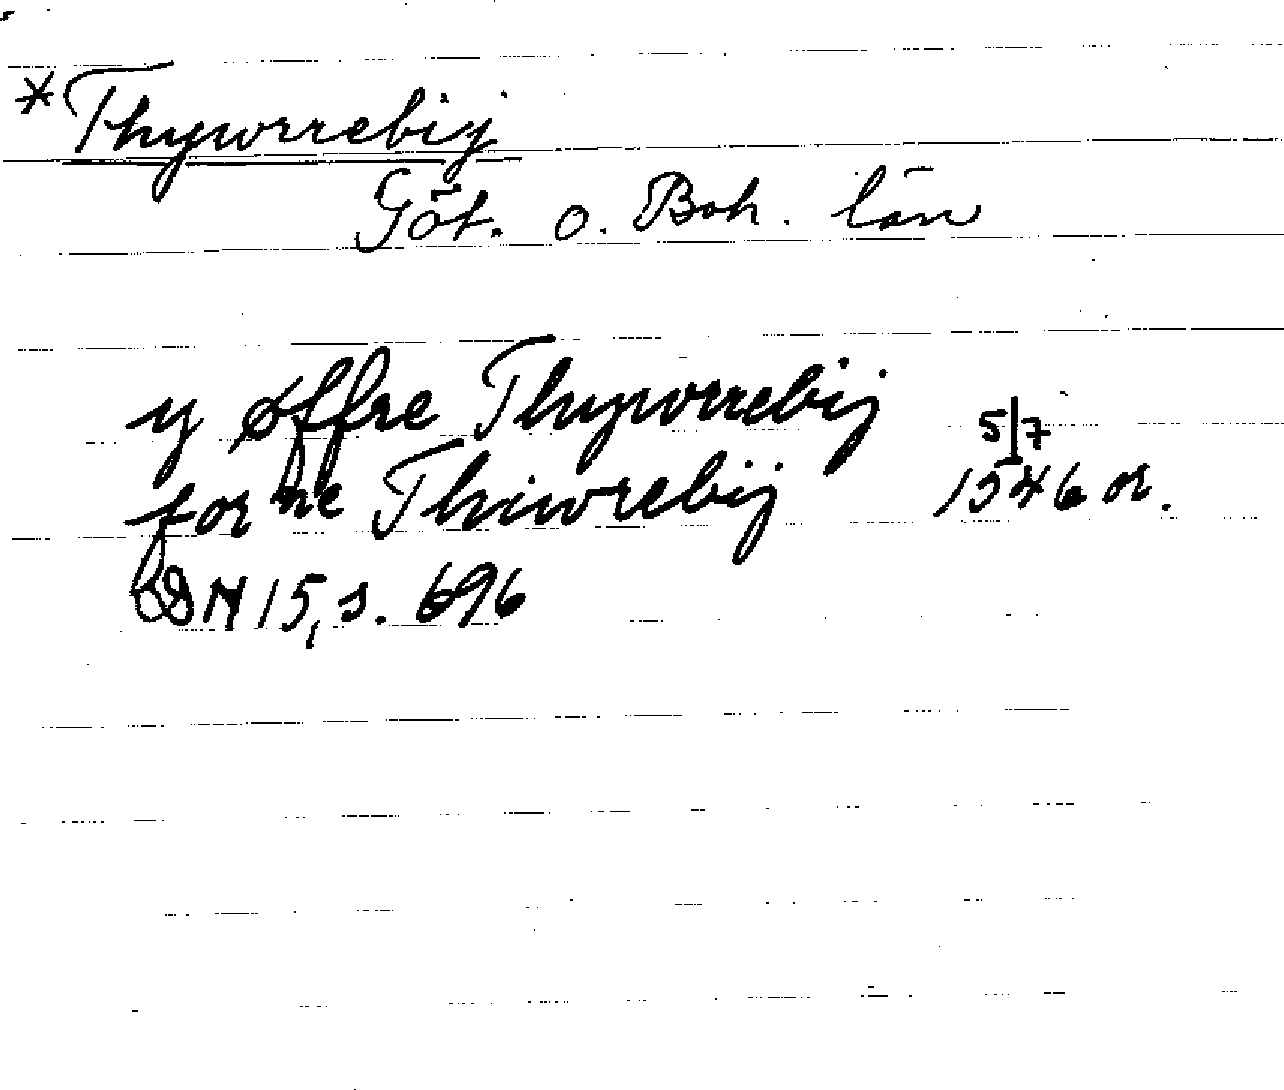 *Thyworrebij
Göt. o. Boh. län
y øffre Thyworrebij 5/7
for ne Thiworebij 1546 or.
DN 15, s. 696